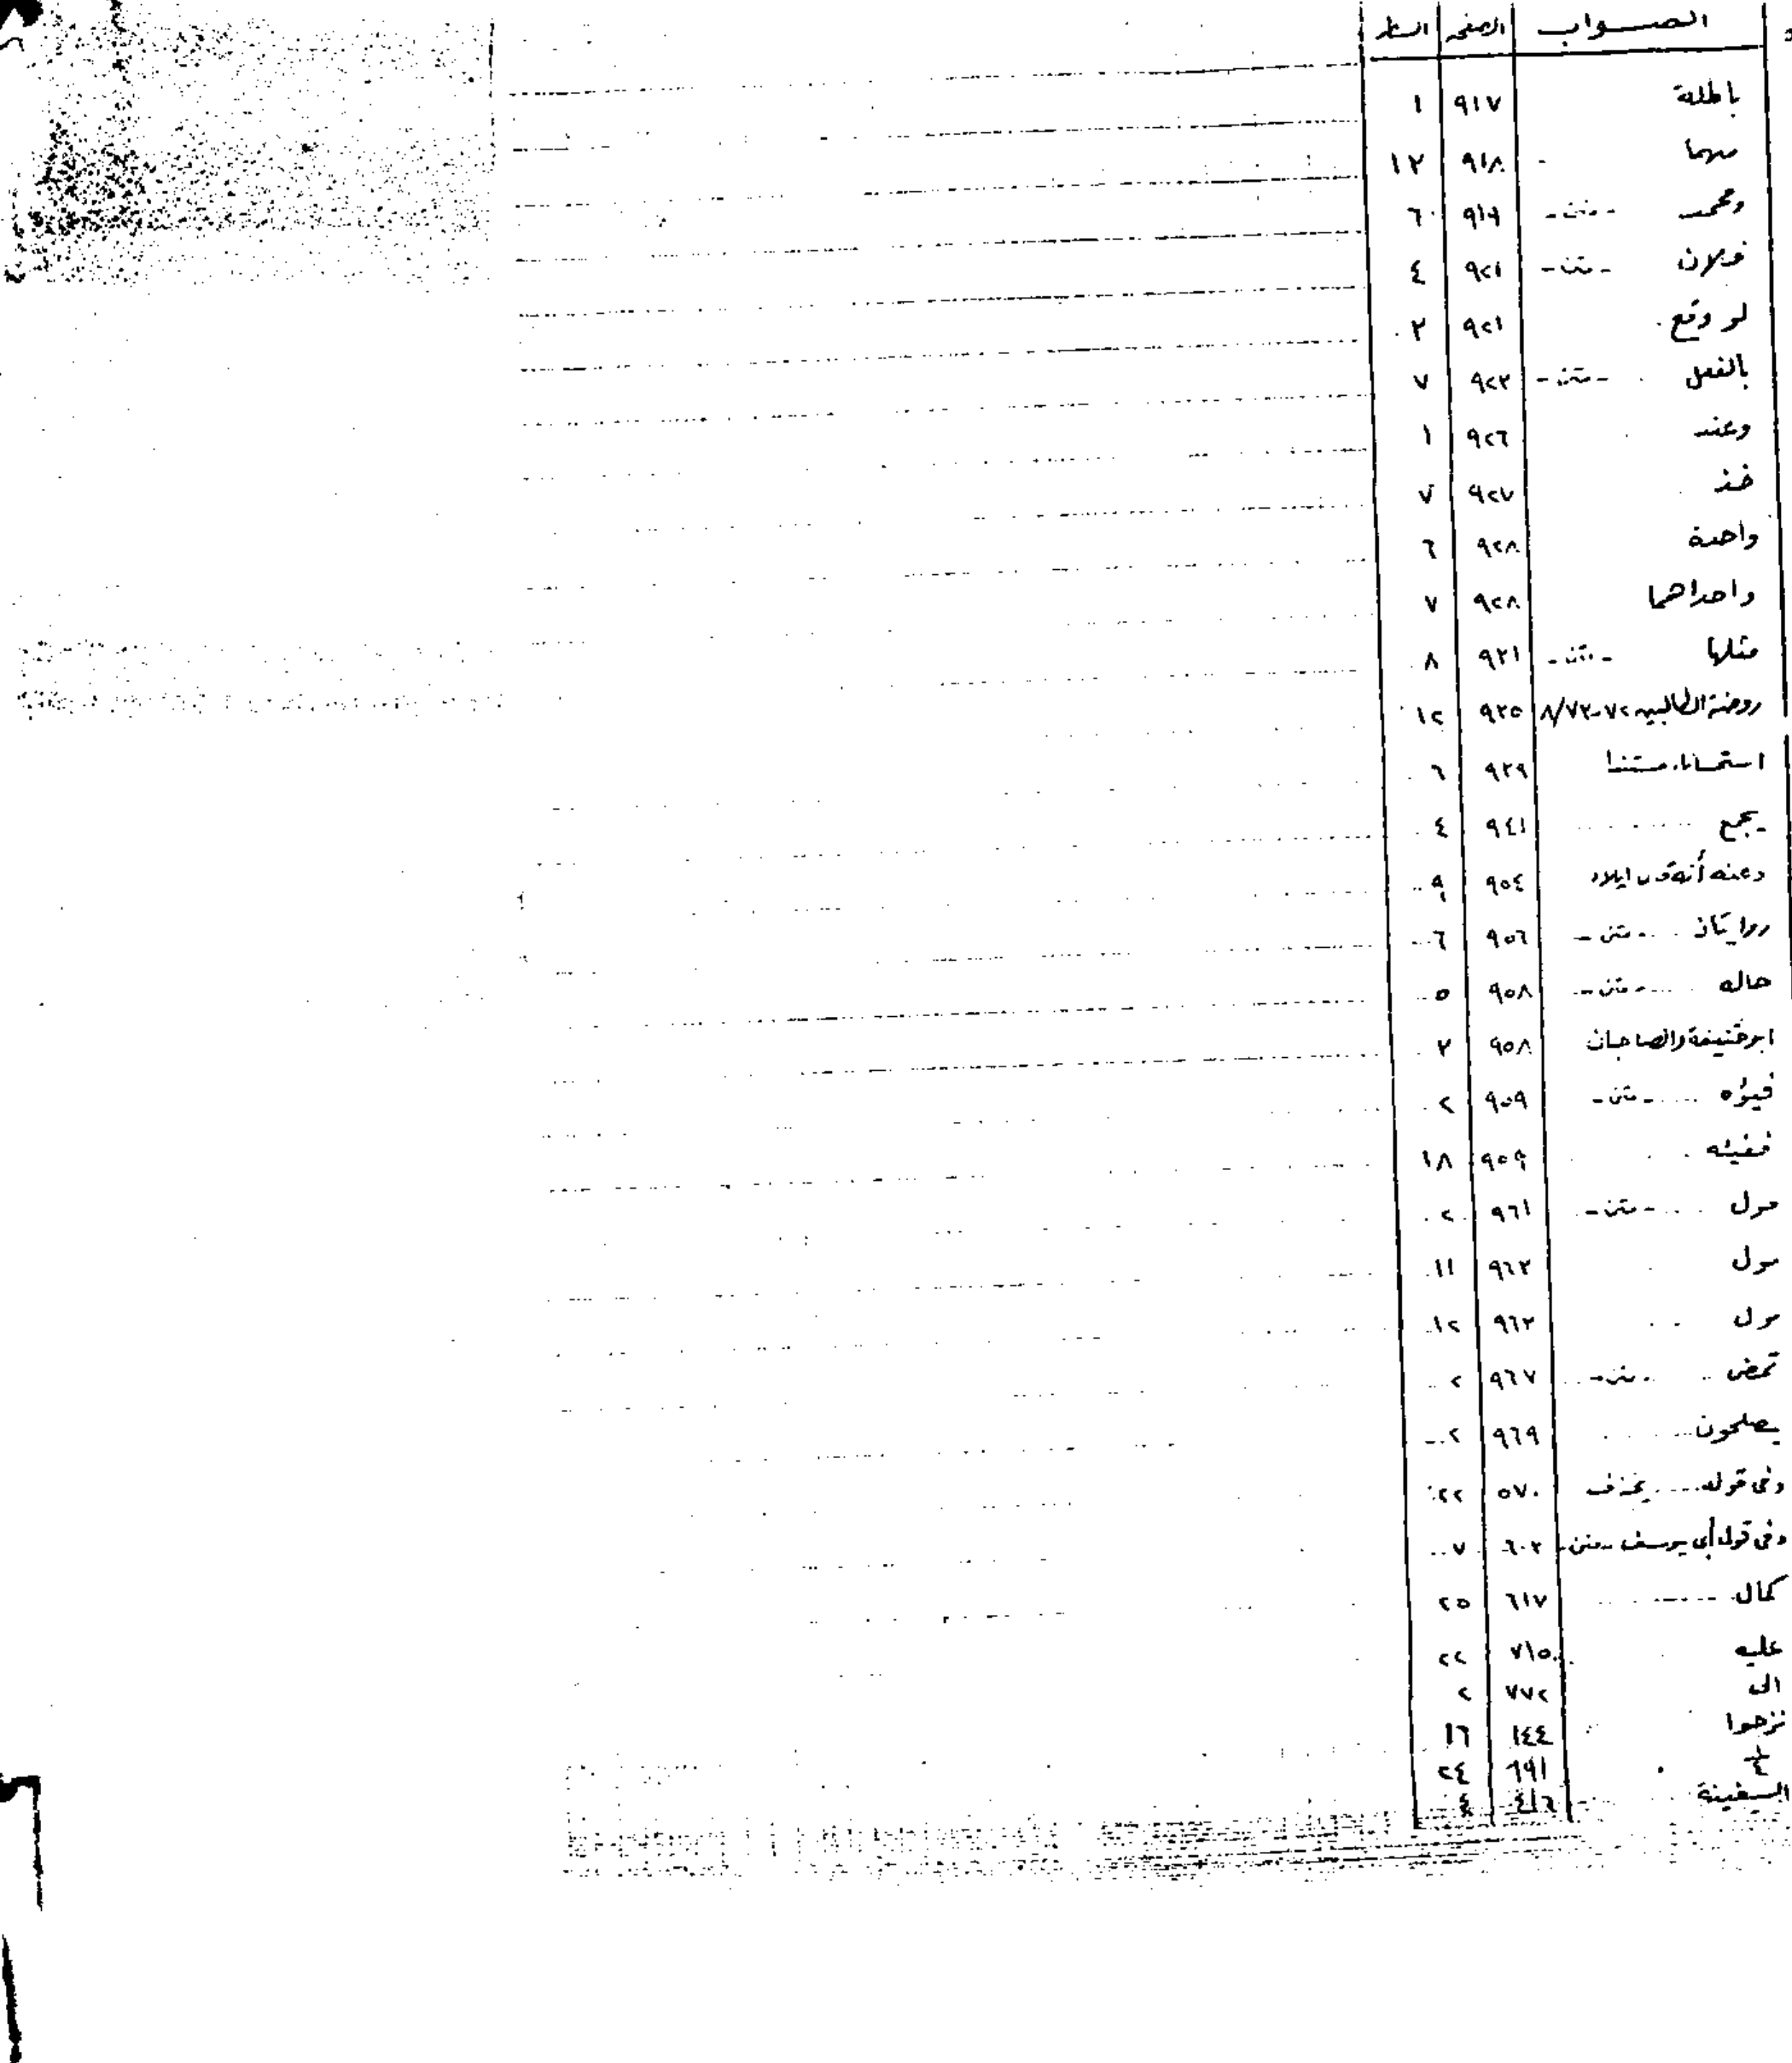 الصواب الصفحة السطر
باطلة ٩١٧ ١
مهما ٩١٨ ١٣
ومحمد - متن - ٩١٩ ٦
- متن - ٩٢١ ٤
لو وقع ٩٢١ ٣
بالفعل - متن - ٩٢٣ ٧
وعند ٩٢٦ ١
خذ ٩٢٧ ٧
واحدة ٩٢٨ ٦
واحداهما ٩٢٨ ٧
مثلها - متن - ٩٣١ ٨
روضة الطالبين ٧٢-٧٣/٨ ٩٣٥ ١٢
استحسانا، مستندا ٩٣٩ ٦
يجمع ٩٤١ ٤
وعنه أنه ايلاء ٩٥٤ ٩
روايتان - متن - ٩٥٦ ٦
حاله - متن - ٩٥٨ ٥
ابو حنيفة والصاحبان ٩٥٨ ٣
فيؤه - متن - ٩٥٩ ٢
ففيئه ٩٥٩ ١٨
مول - متن - ٩٦١ ٢
مول ٩٦٣ ١١
مول ٩٦٣ ١٢
تمض - متن - ٩٦٧ ٢
يصلحون ٩٦٩ ٢
وفى قوله .... يحذف ٥٧٠ ٢٢
وفى قول أبى يوسف - متن - ٦٠٣ ٧
كمال ٦١٧ ٢٥
عليه ٧١٥ ٢٢
الى ٧٧٢ ٢
نزحوا ١٤٤ ١٦
١/٤ ٦٩١ ٢٤
السفينة ٤١٦ ٤